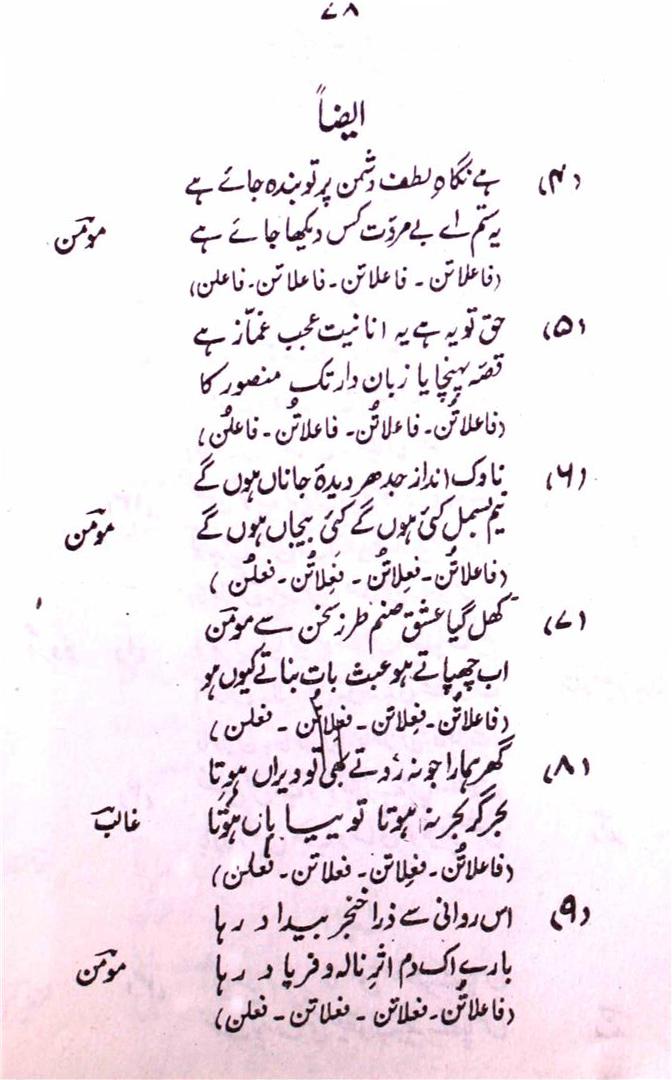 ۷۸
ایضاً
(۴) ہے نگاہِ لطف دشمن پر تو بندہ جائے ہے
یہ ستم اے بے مروّت کس دیکھا جائے ہے مومنؔ
(فاعلاتن ۔ فاعلاتن ۔ فاعلاتن ۔ فاعلن)
(۵) حق تو یہ ہے یہ انانیت عجب غمّاز ہے
قصّہ پہنچایا زبان دار تک منصور کا
(فاعلاتُن ۔ فاعلاتُن ۔ فاعلاتُن ۔ فاعلُن)
(۶) ناوک انداز جدھر دیدۂ جاناں ہوں گے
نیم بسمل کئی ہوں گے کئی بیجاں ہوں گے مومنؔ
(فاعلاتُن ۔ فَعِلاتُن ۔ فَعِلاتُن ۔ فعلُن)
(۷) کھل گیا عشق صنم طرز سخن سے مومنؔ
اب چھپاتے ہو عبث بات بناتے کیوں ہو
(فاعلاتُن ۔ فعِلاتن ۔ فعِلاتُن ۔ فعلن)
(۸) گھر ہمارا جو نہ روتے بھی تو ویراں ہوتا
بحر گر بحر نہ ہوتا تو بیاباں ہوتا غالبؔ
(فاعلاتُن ۔ فعِلاتن ۔ فعلاتن ۔ فعلن)
(۹) اس روانی سے ذرا خنجر بیداد رہا
بارے اک دم اثرِ نالہ و فریاد رہا مومنؔ
(فاعلاتُن ۔ فعلاتن ۔ فعلاتن ۔ فعلن)